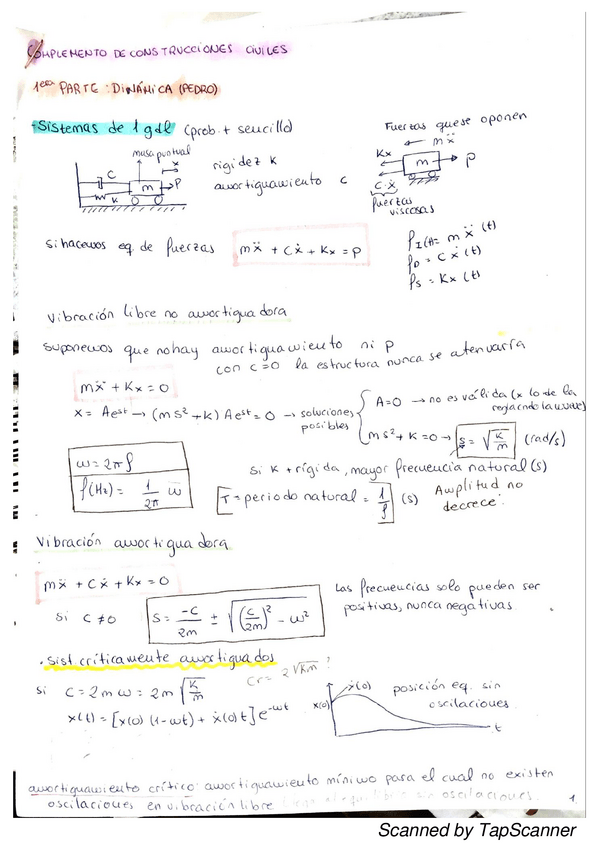 COMPLEMENTO DE CONSTRUCCIONES CIVILES
1era PARTE: DINÁMICA (PEDRO)
Sistemas de 1 gdl (prob. + sencillo)
masa puntual
x
C
m
P
K
rigidez K
amortiguamiento c
Fuerzas que se oponen
mẍ
Kx
m
P
C·ẋ
fuerzas
viscosas
si hacemos eq. de fuerzas mẍ + Cẋ + Kx = P
f_I(t) = m ẍ (t)
f_D = C ẋ (t)
f_S = Kx (t)
Vibración libre no amortiguadora
suponemos que no hay amortiguamiento ni P
con c=0 la estructura nunca se atenuaría
mẍ + Kx = 0
x = Ae^st → (ms² + k) Ae^st = 0 → soluciones
posibles
A=0 → no es válida (x lo de la
ms² + K = 0 → s = √(K/m) (rad/s)
ω = 2π f
f(Hz) = 1/2π ω
si K + rígida, mayor frecuencia natural (s)
T = periodo natural = 1/f (s)
Amplitud no
decrece
Vibración amortiguadora
mẍ + Cẋ + Kx = 0
si C ≠ 0
s = -C/2m ± √((C/2m)² - ω²)
Las frecuencias solo pueden ser
positivas, nunca negativas
. Sist críticamente amortiguados
Cr = 2√Km ?
si C = 2mω = 2m √(K/m)
x(t) = [x(0) (1-ωt) + ẋ(0) t] e^-ωt
x(0)
ẋ(0)
t
posición eq. sin
oscilaciones
amortiguamiento crítico: amortiguamiento mínimo para el cual no existen
oscilaciones en vibración libre
sin oscilaciones.
1.
Scanned by TapScanner